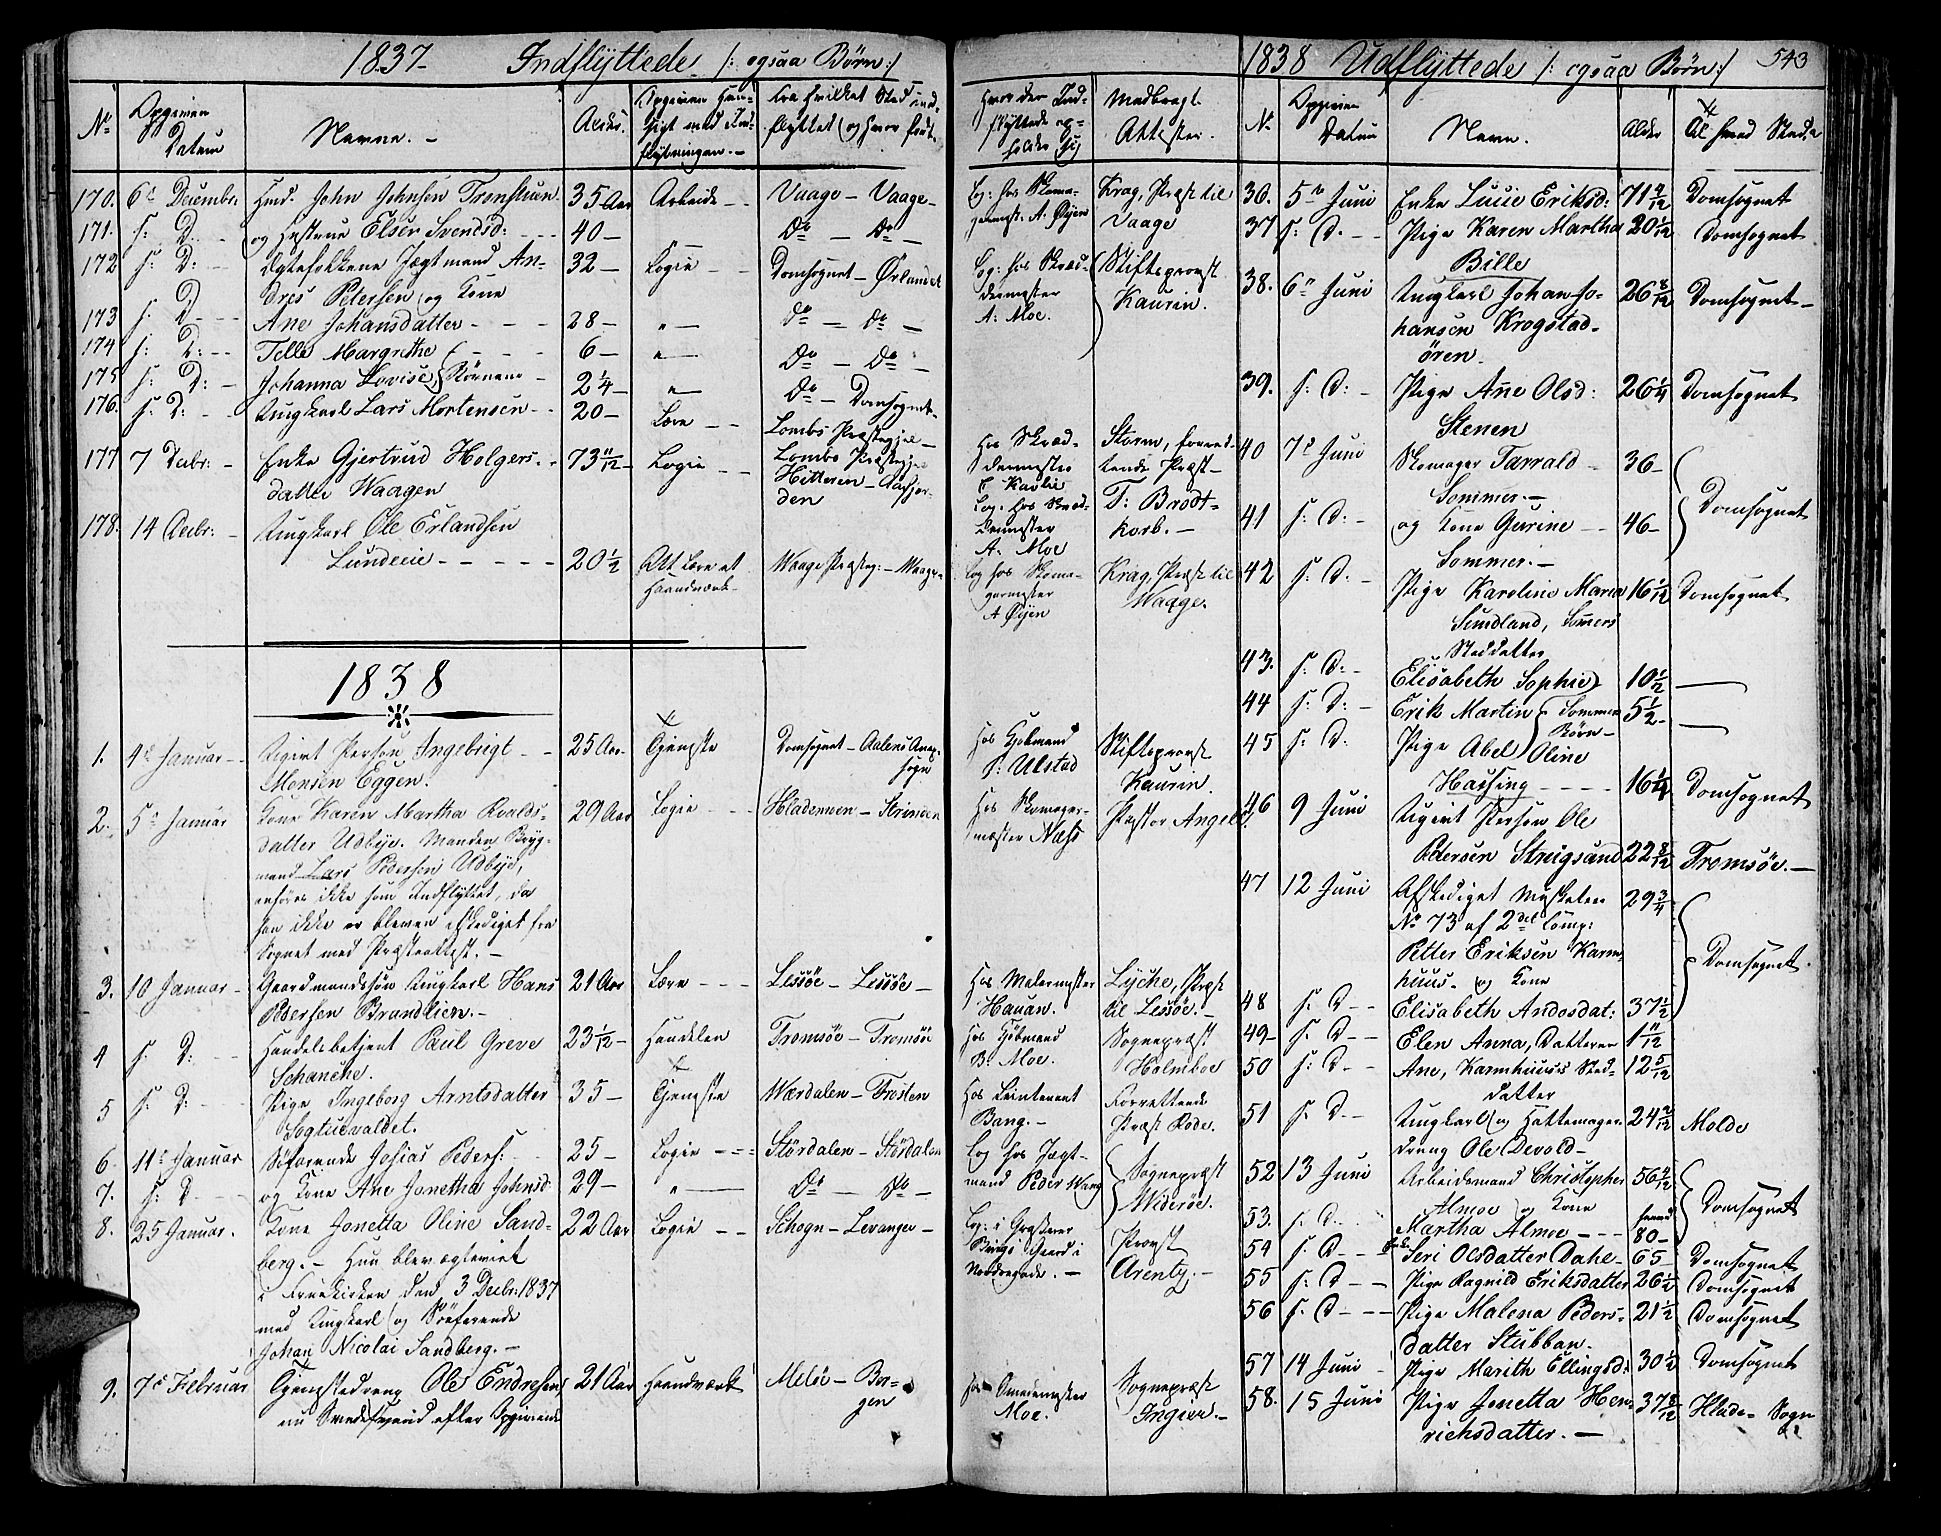 1837 Indflyttede /: ogsaa Børn :/
No
Opgiven Datum
Navne. -
Alder.
Opgiven Hensigt med Indflytningen. -
Fra hvilket Sted indflyttet (og hvor født
Hvor den Indflyttede opholder sig
Medbragt Attester.
170. 6te Decembr: Hmd. John Johnsen 35 Aar Arbeide - - Vaage - Vaage - Log: hos Skomagermst: A: Øyen Krag, Præst til Vaage
171. s: D: - og Hustrue Elsen Svendsd: - - - 40 - Do - Do -
172 s: D: - Ægtefolkene Jægtmand Andres Petersen og Kone 32 - Logie - - Domsognet - Ørlandet Log: hos Skrædermester A: Moe. Stiftsprovst Kaurin.
173 s: D. - - Ane Johansdatter - - - 28 - " - Do - Do -
174 s: D: - - Margrethe - - - 6 - " - Do - Do -
175 s: D: - Johanna Lovise Børnene - 2 1/4 - " - Do - Domsognet -
176. s: D: - - Ungkarl Lars Mortensen - - 20 - Lære - - Lombs Præstegjel - Hos Skrædermester Storm, forrettende Præst -
177 7 Decbr: - Enke Gjertrud Holgersdatter Waagen 73 11/12 - Logie - - Hitteren - Log. hos Skrædermester A: Moe T: Brodtkorb. -
178. 14 Decbr: - Ungkarl Ole Erlandsen - - - - - 20 1/2 At lære et Haandværk - Waage Præsteg: - Waage - Log hos Skomagermester A Øyen Krag, Præst til Waage.
1838
1. 4de Januar - - Vigivt Person Ingebrigt - - Monsen Eggen. 25 Aar - Tjeneste Domsognet - Aalens Annexsogn Hos Kjøbmand P: Ulstad Stiftsprovst Kaurin.
2. 5te Januar Kone Karen Martha Roaldsdatter Udbye. Manden Bryggmand Lars Pedersen Udbye, anføres ikke som Indflyttet, da han ikke er bleven afskediget fra Sognet med Præsteattest. - 29 Aar Logie - - Hladeneen - Strinden Hos Skomagermester Næss Pastor Angell
3. 10 Januar - Gaardmandssøn Ungkarl Hans Pedersen Brandlien. - 21 Aar Lære - - - Lessöe - Lessöe - Hos Malermester Hauan. Lyche, Præst til Lessöe. -
4 s: D: - - Handelsbetjent Paul Greve Schanche. 23 1/12 - Handelen Tromsöe - Tromsöe Hos Kjøbmand B: Moe. Sognepræst Holmboe
5 s: D: - - Pige Ingeborg Arntsdatter 35 - Tjeneste Wærdalen - Frosten Hos Leutenant Bang. - Forrettende Præst Rode.
6. 11te Januar Søfarende Josias Peders: 25 - Logie - - - Stördalen - Stördalen Log hos Jægtmand Peder Wang Sognepræst Widerøe.
7. s: D - og Kone Ane Jonetha Johnsd: 29 - " - Do - Do -
8. 25 Januar. Kone Jonetta Oline Sandberg. - Hun blev ægteviet i Fruekirken den 3 Decbr: 1837 med Ungkarl (og Söefarende Johan Nicolai Sandberg. - 22 Aar Logie - - Schogn - Levanger - Log: i Bings Gaard i Nordregade. - Provst Arentz. -
9. 7de Februar Tjenestedreng Ole Endresen nu Smedesvend efter Opgivende 21 Aar Haandværk Melöe - Bergen Hos Smedemester Moe. Sognepræst Ingier. -
1838 Udflyttede /: ogsaa Børn :/ 543
No
Opgiven Datum
Navn.
Alder
Til hvad Sted
36. 5te Juni Enke Lucie Eriksd: 71 4/12 Domsognet
37 s: D. - - Pige Karen Martha Bille 20 1/12 Domsognet
38. 6te Juni Ungkarl Johan Johansen Krogstadören. 26 8/12 Domsognet -
39. s: D: - Pige Ane Olsd: Stenen 26 1/4 Domsognet
40 7de Juni Skomager Tarrald - Sommer. - 36 - Domsognet
41 s: D: - og Kone Gurine - - Sommer. - 46 -
42 s: D. - Pige Karoline Maria Sundland, Somers Steddatter 16 1/12 Domsognet
43. s: D: - Elisabeth Sophie 10 1/2 -
44 s: D: - Erik Martin Sommers Børn - 5 1/2 - -
45 s: D: Pige Abel Oline Hassing - - - - 16 1/4 Domsognet
46 9 Juni Vigivt Person Ole Pedersen Strugsand 22 8/12 Tromsöe. -
47 12 Juni Afskediget Musketer No 73 af 2det Comp: Petter Eriksen Karmhuus. - og Kone 29 3/4 Domsognet.
48 s: D - - Elisabeth Andosdat: 37 1/2
49 - s: D. - - Elen Anna, Datteren 1 11/12
50 s: D: - - Ane, Karmhuus Steddatter 12 5/12
51 s. D. - - Ungkarl (og Hattemagerdreng Ole Devold - 24 2/12 Molde
52 13 Juni Arbeidsmand Christopher Almoe og Kone 56 4/12 Domsognet
53. s: D. Martha Almoe - - - 80 -
54 s: D - - Enke Seri Olsdatter Dahl - 65 - Domsognet
55 s: D - - Pige Ragnild Eriksdatter 26 1/2 Domsognet
56 s: D - - - Pige Malena Pedersdatter Stubban. 21 1/2 Domsognet
57 14 Juni - Pige Marith Ellingsd: 30 1/2 Domsognet
58. 15 Juni Pige Jonetta Henrichsdatter. - 37 8/12 Hlade - Sogn